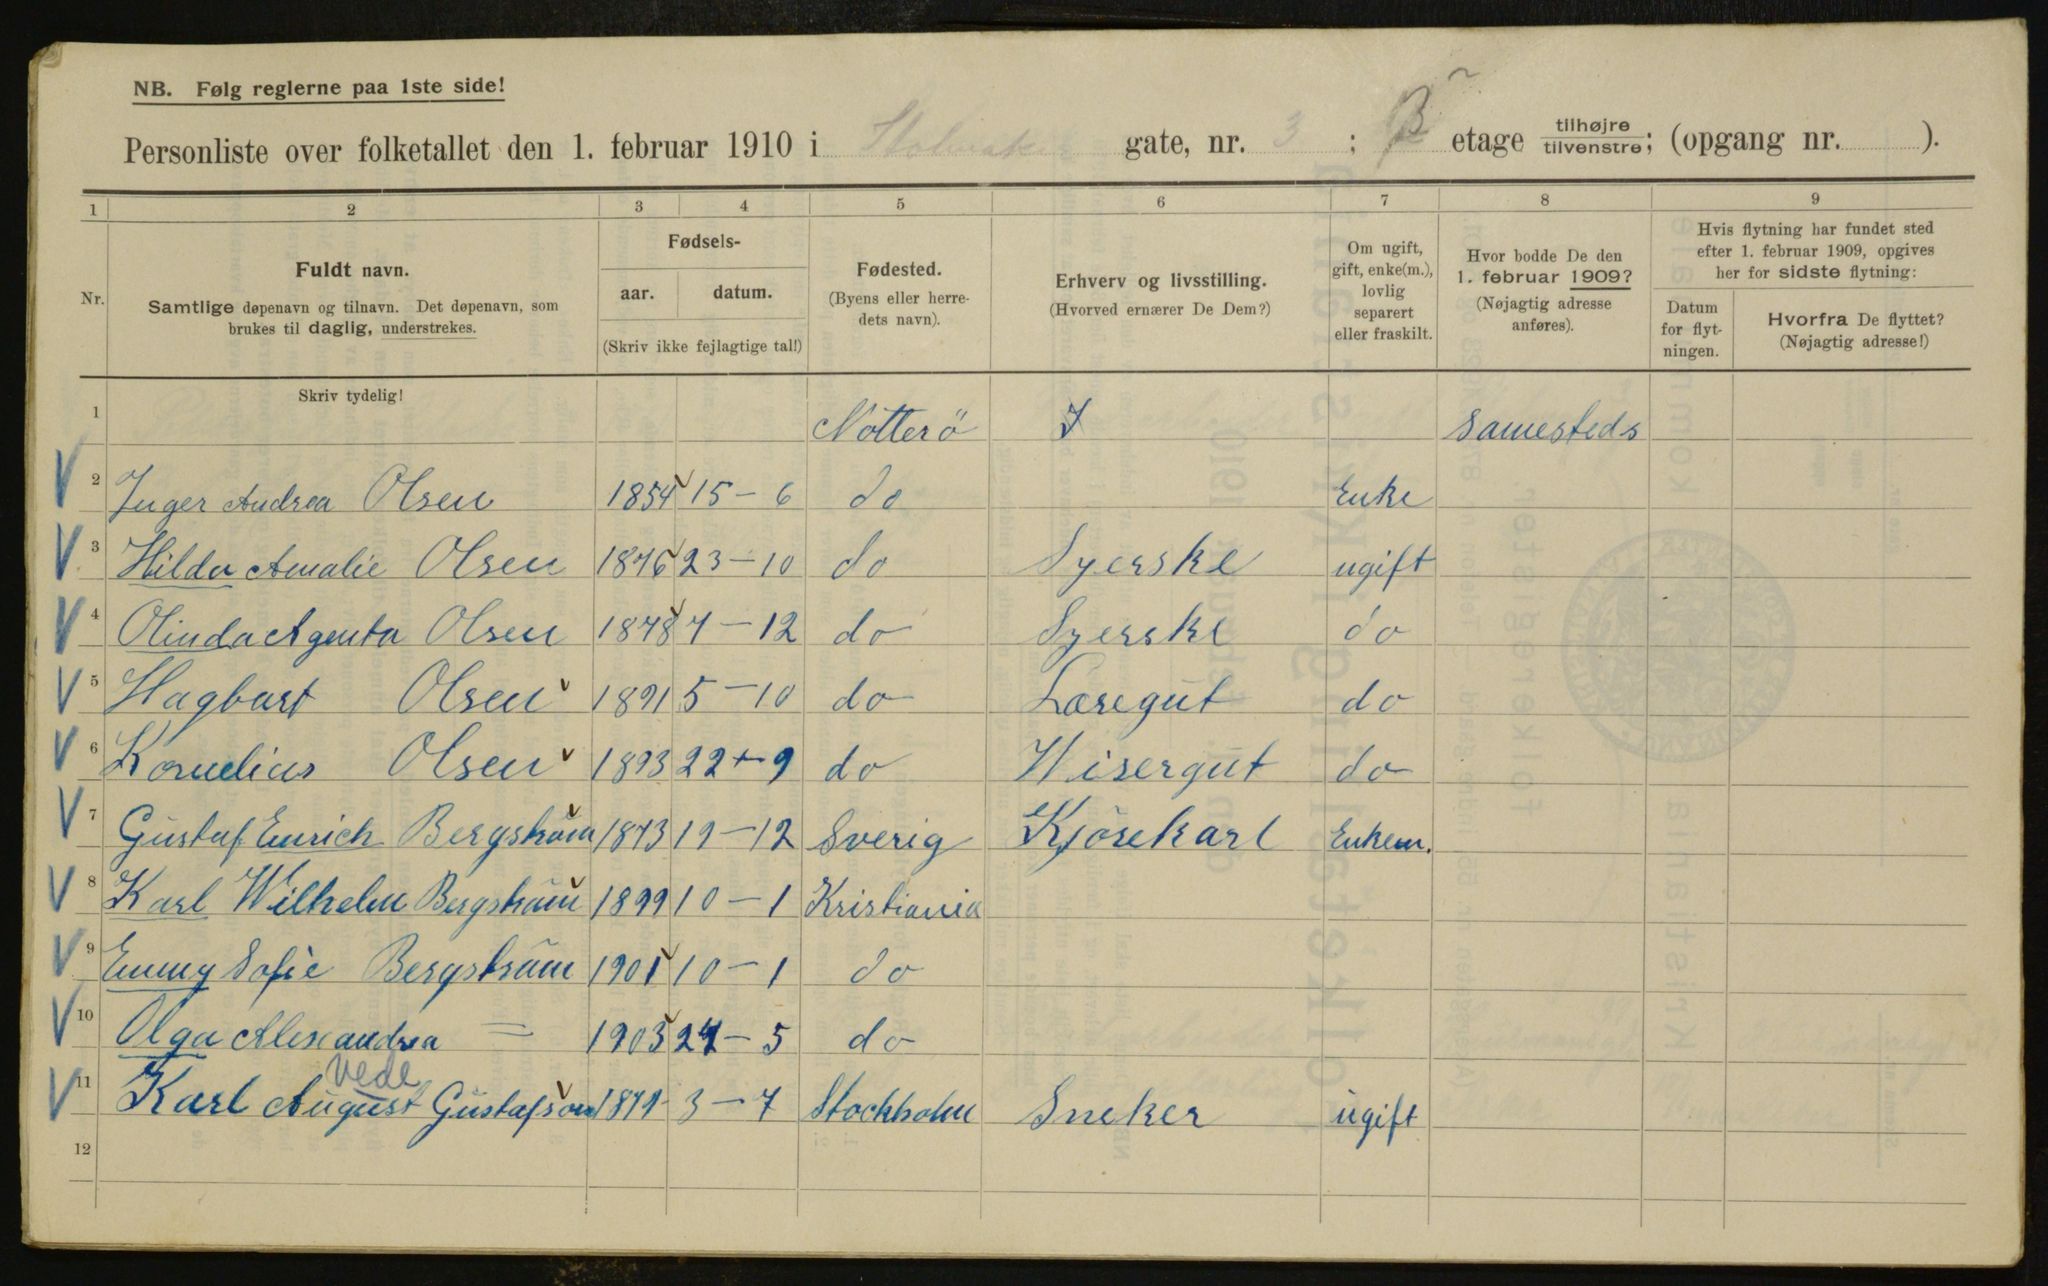 NB. Følg reglerne paa 1ste side!
Personliste over folketallet den 1. februar 1910 i gate, nr. 3 ; B etage tilhøjre tilvenstre; (opgang nr. ).
1 2 3 4 5 6 7 8 9
Nr.
Fuldt navn.
Samtlige døpenavn og tilnavn. Det døpenavn, som
brukes til daglig, understrekes.
Fødsels-
aar. datum.
(Skriv ikke fejlagtige tal!)
Fødested.
(Byens eller herre-
dets navn).
Erhverv og livsstilling.
(Hvorved ernærer De Dem?)
Om ugift,
gift, enke(m.),
lovlig
separert
eller fraskilt.
Hvor bodde De den
1. februar 1909?
(Nøjagtig adresse
anføres).
Hvis flytning har fundet sted
efter 1. februar 1909, opgives
her for sidste flytning:
Datum
for flyt-
ningen.
Hvorfra De flyttet?
(Nøjagtig adresse!)
Skriv tydelig!
1 Nötterö samesteds
2 Inger Andrea Olsen 1854 15-6 do Enke
3 Hilda Amalie Olsen 1876 23-10 do Syerske ugift
4 Olinda Agenta Olsen 1878 7-12 do Syerske do
5 Hagbart Olsen 1891 5-10 do Læregut do
6 Kornelius Olsen 1893 22-9 do Wisergut do
7 Gustaf Enrich Bergström 1873 19-12 Sverig Kjörekarl Enkem.
8 Karl Wilhelm Bergström 1899 10-1 Kristiania
9 Emmy Sofie Bergström 1901 10-1 do
10 Olga Alexandra = 1903 24-5 do
Vede
11 Karl August Gustafson 1879 3-7 Stockholm Sneker ugift
12